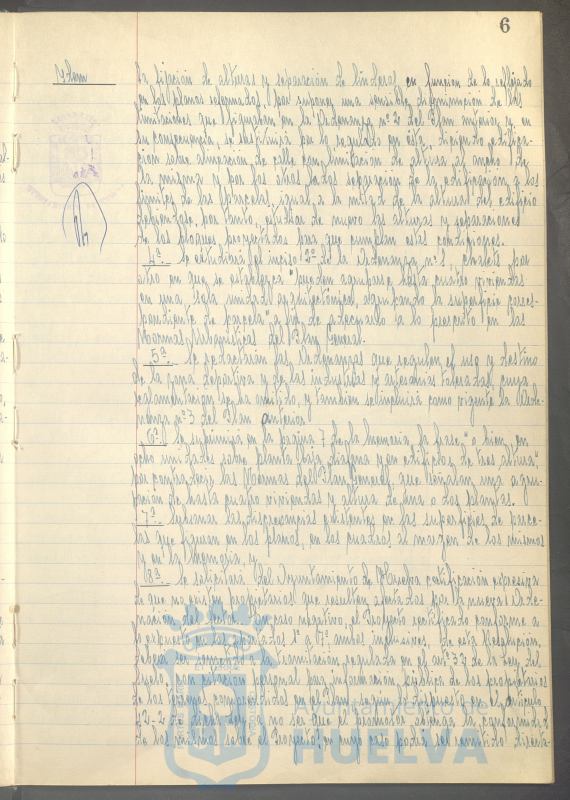 6
Idem
la fijación de alturas y separación de linderos en función de lo reflejado
en los planos reformados, por suponer una sensible disminución de las
limitaciones que figuraban en la Ordenanza nº 2 del Plan anterior y en
su consecuencia, se sustituirá por lo regulado en esta, diciendo edifica-
ción sobre alineación de calle con limitación de altura al ancho de
la misma y por los otros lados separación de la edificación a los
límites de las parcelas igual a la mitad de la altura del edificio
debiéndose, por tanto, estudiar de nuevo las alturas y separaciones
de los bloques proyectados para que cumplan estas condiciones.
4ª.- Se sustituirá el inciso 2º de la Ordenanza nº 8, chalets por
otro en que se establezca "pueden agruparse hasta cuatro viviendas
en una sola unidad arquitectónica, agrupando la superficie corres-
pondiente de parcela" a fin de adecuarlo a lo prescrito en las
Normas Urbanísticas del Plan General.
5ª.- Se redactarán las Ordenanzas que regulen el uso y destino
de la zona deportiva y de las industrias y artesanías toleradas, cuya
reglamentación se ha omitido, y también se incluirá como vigente la Orde-
nanza nº 3 del Plan anterior.
6ª.- Se suprimirá en la página 7 de la Memoria la frase "o bien, en
ocho unidades sobre planta baja diáfana y en edificios de tres alturas",
por contradecir las Normas del Plan General, que señalan una agru-
pación de hasta cuatro viviendas y altura de una o dos plantas.
7ª.- Subsanar las discrepancias existentes en las superficies de parce-
las que figuran en los planos, en los cuadros al margen de los mismos
y en la Memoria, y
8ª.- Se solicitará del Ayuntamiento de Huelva certificación expresiva
de que no existen propietarios que resulten afectados por la nueva Orde-
nación del sector. En caso negativo, el Proyecto rectificado conforme a
lo expuesto en los apartados 1º a 7º ambos inclusives, de esta Resolución,
deberá ser sometido a la tramitación regulada en el artº 32 de la Ley del
Suelo, con citación personal para información pública de los propietarios
de los terrenos comprendidos en el Plan, según lo dispuesto en el artículo
42-2 de la misma, a no ser que el promotor obtenga la conformidad
de los mismos sobre el Proyecto, en cuyo caso podrá ser remitido directa-
Ayuntamiento de
HUELVA